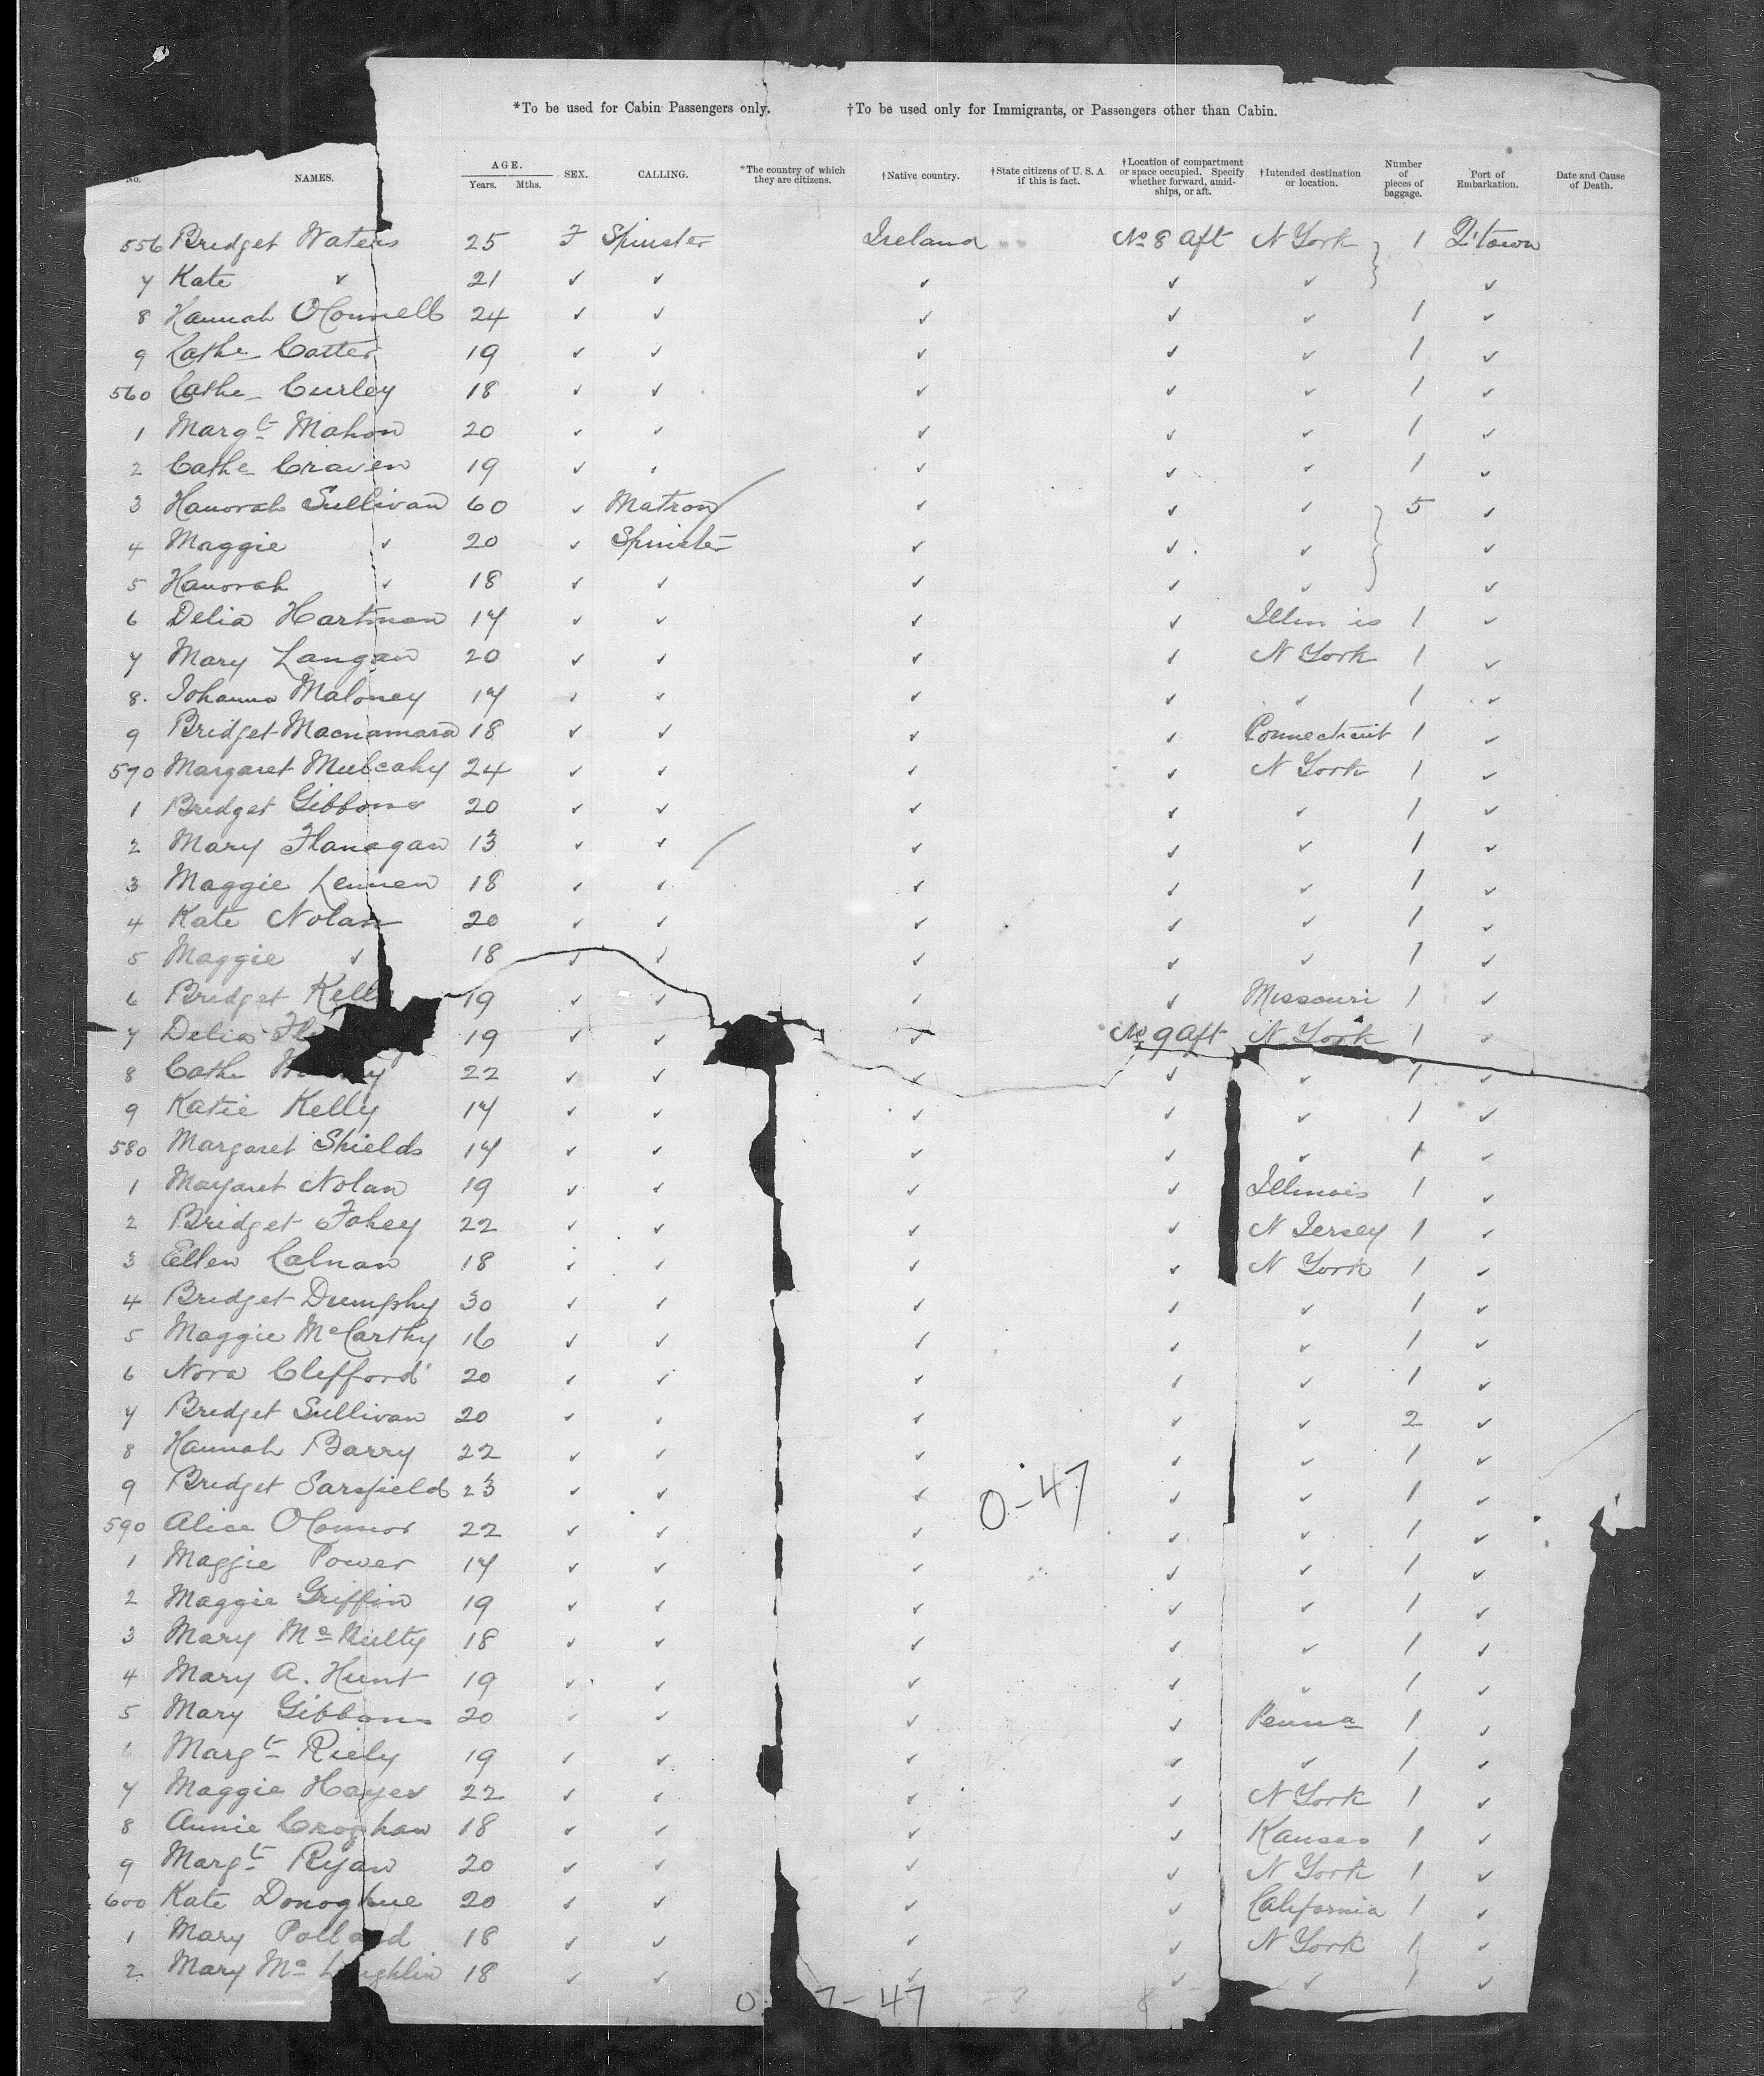 *To be used for Cabin Passengers only. †To be used only for Immigrants, or Passengers other than Cabin.
No. NAMES. AGE. Years. Mths. SEX. CALLING. *The country of which they are citizens. †Native country. †State citizens of U. S. A. if this is fact. †Location of compartment or space occupied. Specify whether forward, amidships, or aft. †Intended destination or location. Number of pieces of baggage. Port of Embarkation. Date and Cause of Death.
556 Bridget Waters 25 F Spinster Ireland No 8 Aft N York 1 Q'town
7 Kate ✓ 21 ✓ ✓ ✓ ✓ ✓ ✓
8 Hannah OConnell 24 ✓ ✓ ✓ ✓ ✓ 1 ✓
9 Cathe Cotter 19 ✓ ✓ ✓ ✓ ✓ 1 ✓
560 Cathe Curley 18 ✓ ✓ ✓ ✓ ✓ 1 ✓
1 Margt Mahon 20 ✓ ✓ ✓ ✓ ✓ 1 ✓
2 Cathe Craven 19 ✓ ✓ ✓ ✓ ✓ 1 ✓
3 Hanorah Sullivan 60 ✓ Matron ✓ ✓ ✓ 5 ✓
4 Maggie ✓ 20 ✓ Spinster ✓ ✓ ✓ ✓
5 Hanorah ✓ 18 ✓ ✓ ✓ ✓ ✓ ✓
6 Delia Hartman 17 ✓ ✓ ✓ ✓ Illin is 1 ✓
7 Mary Langan 20 ✓ ✓ ✓ ✓ N York 1 ✓
8. Johanna Maloney 17 ✓ ✓ ✓ ✓ ✓ 1 ✓
9 Bridget Macnamara 18 ✓ ✓ ✓ ✓ Connecticut 1 ✓
570 Margaret Mulcahy 24 ✓ ✓ ✓ ✓ N York 1 ✓
1 Bridget Gibbons 20 ✓ ✓ ✓ ✓ ✓ 1 ✓
2 Mary Flanagan 13 ✓ ✓ ✓ ✓ ✓ 1 ✓
3 Maggie Lennen 18 ✓ ✓ ✓ ✓ ✓ 1 ✓
4 Kate Nolan 20 ✓ ✓ ✓ ✓ ✓ 1 ✓
5 Maggie ✓ 18 ✓ ✓ ✓ ✓ ✓ 1 ✓
6 Bridget Kell 19 ✓ ✓ ✓ ✓ Missouri 1 ✓
7 Delia 19 ✓ ✓ ✓ No 9 Aft N York 1 ✓
8 Cathe 22 ✓ ✓ ✓ ✓ ✓ 1 ✓
9 Katie Kelly 17 ✓ ✓ ✓ ✓ ✓ 1 ✓
580 Margaret Shields 17 ✓ ✓ ✓ ✓ ✓ 1 ✓
1 Margaret Nolan 19 ✓ ✓ ✓ ✓ Illinois 1 ✓
2 Bridget Fahey 22 ✓ ✓ ✓ ✓ N Jersey 1 ✓
3 Ellen Calnan 18 ✓ ✓ ✓ ✓ N York 1 ✓
4 Bridget Dumphy 30 ✓ ✓ ✓ ✓ ✓ 1 ✓
5 Maggie McCarthy 16 ✓ ✓ ✓ ✓ ✓ 1 ✓
6 Nora Clefford 20 ✓ ✓ ✓ ✓ ✓ 1 ✓
7 Bridget Sullivan 20 ✓ ✓ ✓ ✓ ✓ 2 ✓
8 Hannah Barry 22 ✓ ✓ ✓ ✓ ✓ 1 ✓
9 Bridget Sarsfield 23 ✓ ✓ ✓ 0-47 ✓ ✓ 1 ✓
590 Alice OConnor 22 ✓ ✓ ✓ ✓ ✓ 1 ✓
1 Maggie Power 17 ✓ ✓ ✓ ✓ ✓ 1 ✓
2 Maggie Griffin 19 ✓ ✓ ✓ ✓ ✓ 1 ✓
3 Mary McNulty 18 ✓ ✓ ✓ ✓ ✓ 1 ✓
4 Mary A. Hunt 19 ✓ ✓ ✓ ✓ ✓ 1 ✓
5 Mary Gibbons 20 ✓ ✓ ✓ ✓ Penna 1 ✓
6 Margt Riely 19 ✓ ✓ ✓ ✓ ✓ 1 ✓
7 Maggie Hayes 22 ✓ ✓ ✓ ✓ N York 1 ✓
8 Annie Croghan 18 ✓ ✓ ✓ ✓ Kansas 1 ✓
9 Margt Ryan 20 ✓ ✓ ✓ ✓ N York 1 ✓
600 Kate Donoghue 20 ✓ ✓ ✓ ✓ California 1 ✓
1 Mary Pollard 18 ✓ ✓ ✓ ✓ N York 1 ✓
2 Mary McLoughlin 18 ✓ ✓ ✓ ✓ ✓ 1 ✓
0 7-47